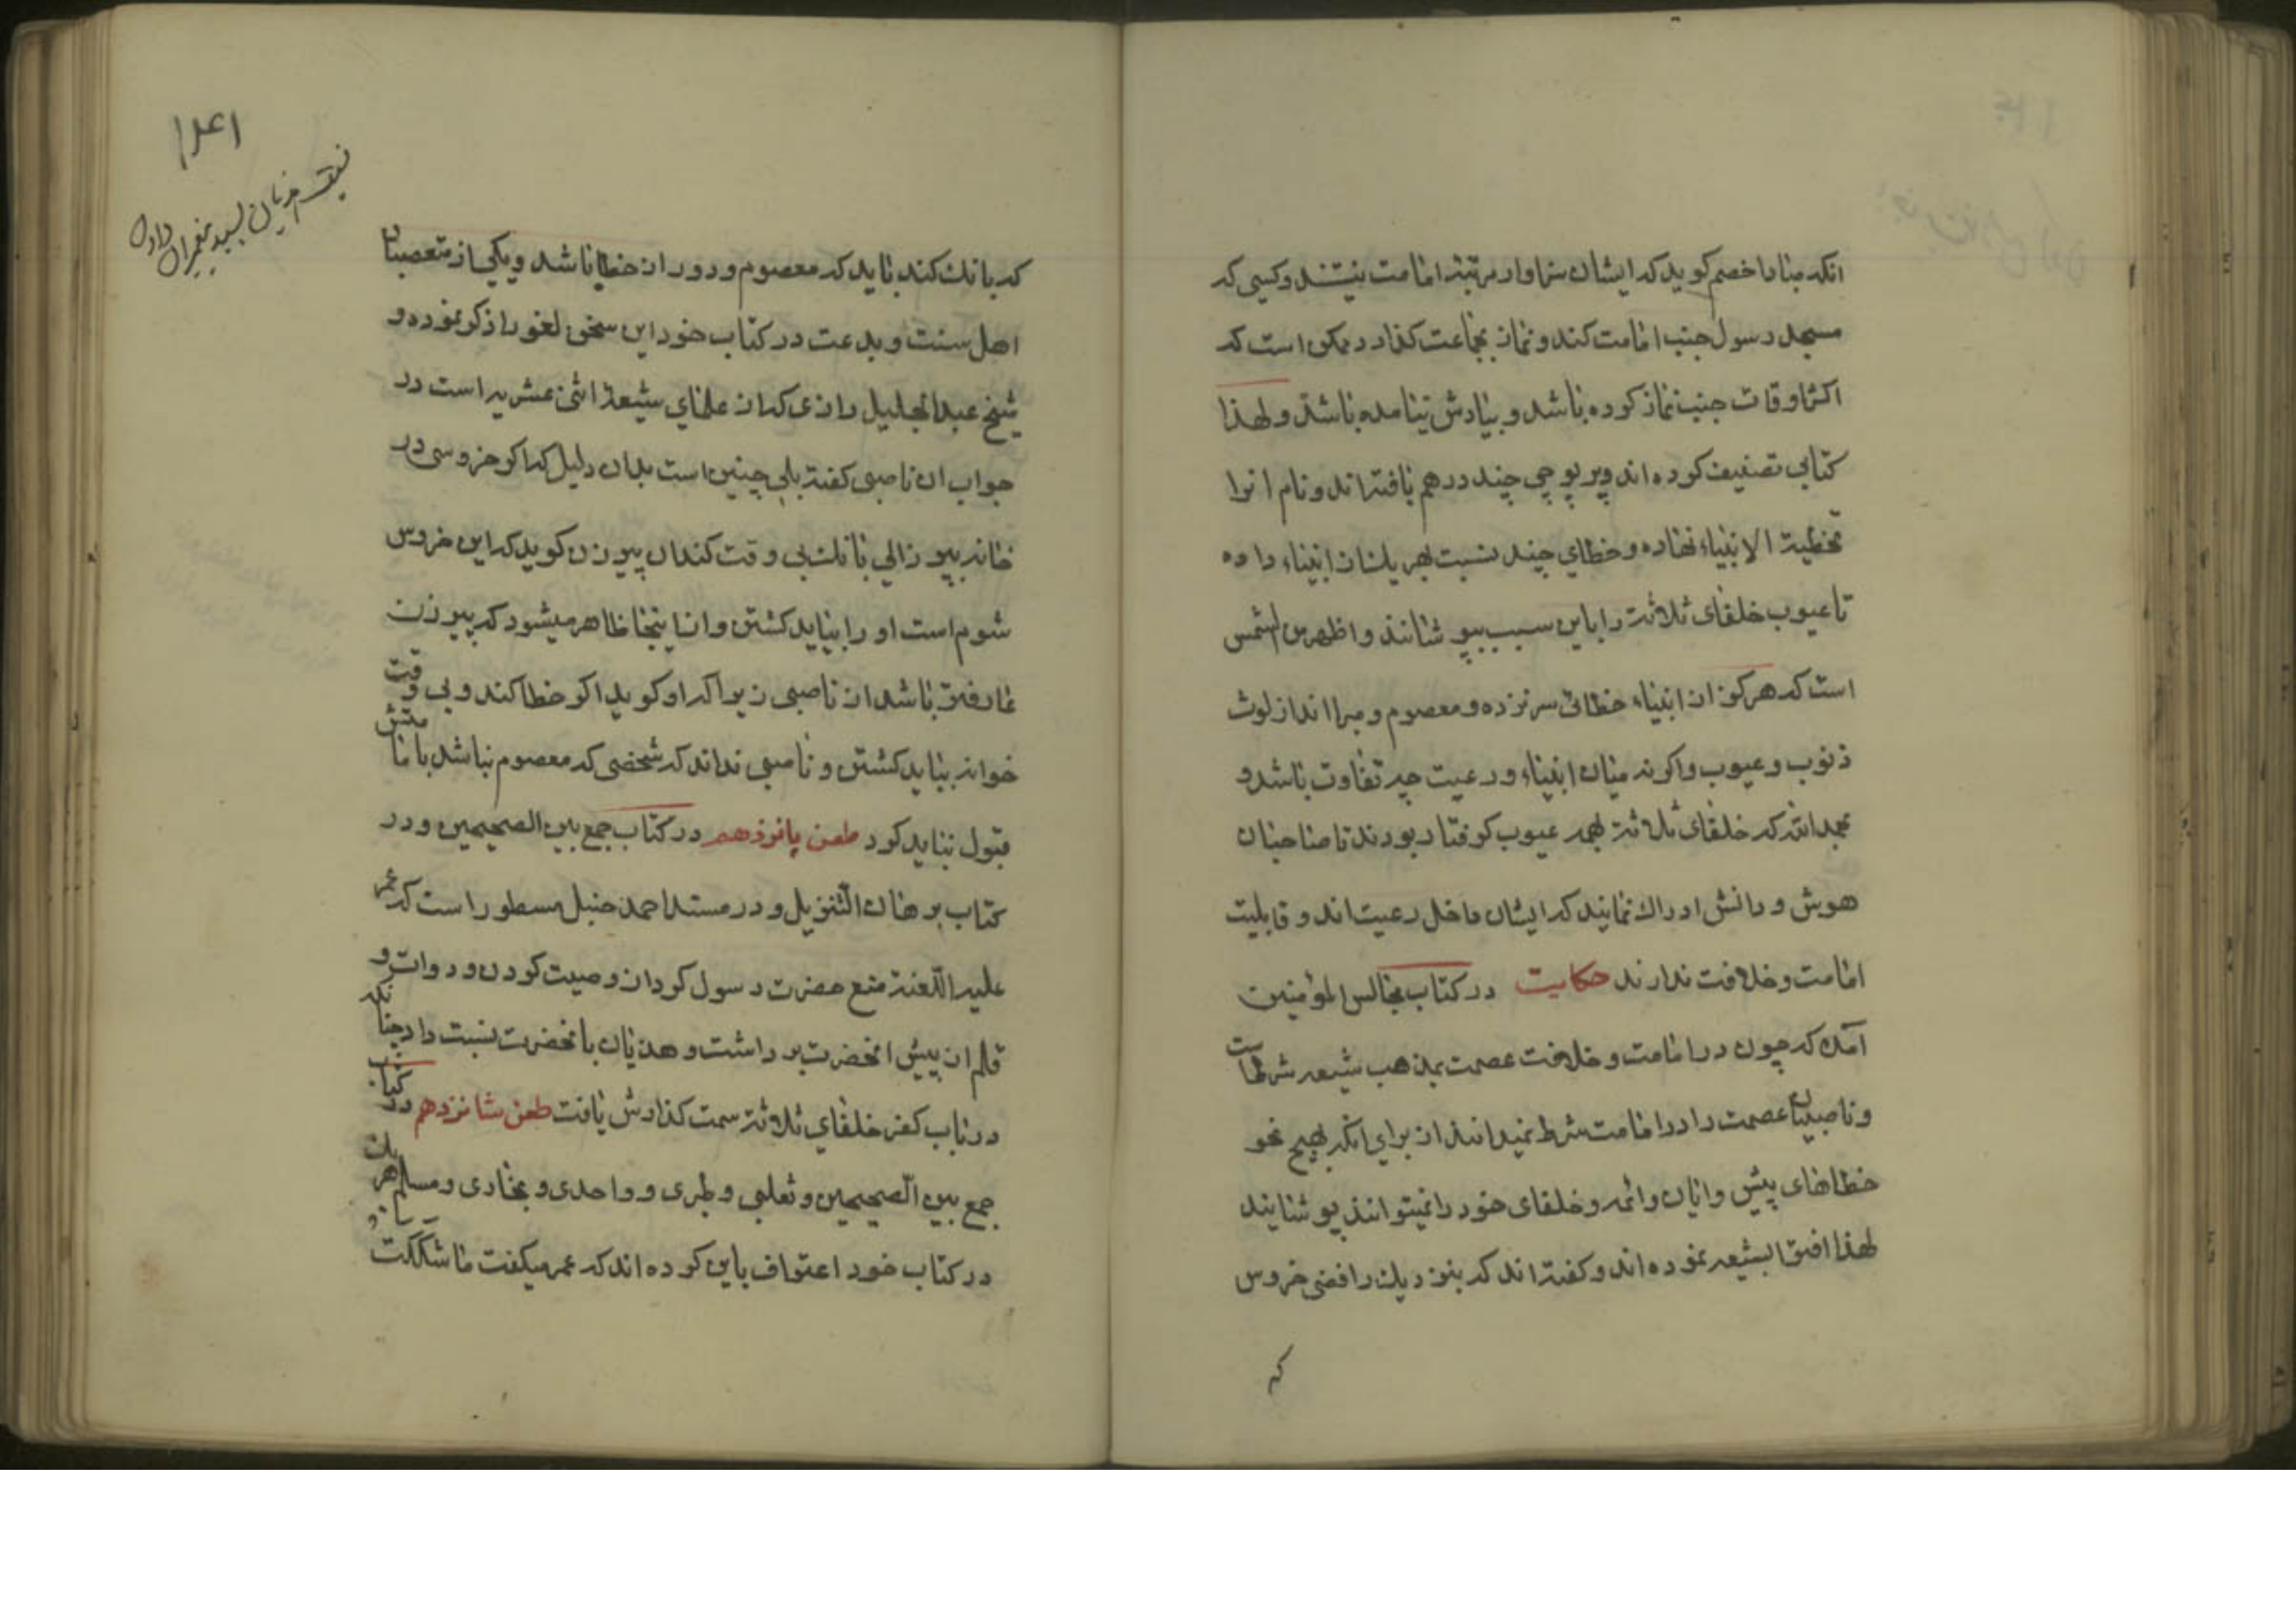 انکه مبادا خصم کوید که ایشان سزاوار مرتبهٔ امامت نیستند و کسی که
مسجد رسول جنب امامت کند و نماز بجماعت کذارد ممکن است که
اکثر اوقات جنب نماز کرده باشد و بیادش نیامده باشد و لهذا
کتابی تصنیف کرده اند و پر پوچی چند درهم بافته اند و نام انرا
تخطیة الانبیاء نهاده و خطای چند نسبت بهر یک از انبیاء داده
تا عیوب خلفای ثلاثه را باین سبب بپوشانند و اظهر من الشمس
است که هرکز از انبیاء خطائی سر نزده و معصوم و مبرا اند از لوث
ذنوب و عیوب و اکر نه میان انبیاء و رعیت چه تفاوت باشد و
بحمدالله که خلفای ثلاثه بهمه عیوب کرفتار بودند تا صاحبان
هوش و دانش ادراک نمایند که ایشان داخل رعیت اند و قابلیت
امامت و خلافت ندارند حکایت در کتاب مجالس المؤمنین
آمده که چون در امامت و خلافت عصمت بمذهب شیعه شرطست
و ناصبیان عصمت را در امامت شرط نمیدانند از برای انکه بهیچ نحو
خطاهای پیشوایان و ائمه و خلفای خود را نمیتوانند پوشانید
لهذا افترا بشیعه نموده اند و کفته اند که بنزدیک رافضی خروس
که
که بانک کند باید که معصوم و دور از خطا باشد و یکی از متعصبان
اهل سنت و بدعت در کتاب خود این سخن لغو را ذکر نموده و
شیخ عبدالجلیل رازی که از علمای شیعهٔ اثنی عشریه است در
جواب ان ناصبی کفته بلی چنین است بدان دلیل که اکر خروسی در
خانه پیر زالی بانک بی وقت کند ان پیرزن کوید که این خروس
شوم است او را بباید کشتن و از اینجا ظاهر میشود که پیرزن
عارفتر باشد از ناصبی زیرا که او کوید اکر خطا کند و بی وقت
خواند بباید کشتن و ناصبی نداند که شخصی که معصوم نباشد بامامتش
قبول نباید کرد طعن پانزدهم در کتاب جمع بین الصحیحین و در
کتاب برهان التنزیل و در مسند احمد حنبل مسطور است که عمر
علیه اللعنة منع حضرت رسول کرد از وصیت کردن و دوات و
قلم از پیش انحضرت برداشت و هذیان بانحضرت نسبت داد چنانکه
در باب کفر خلفای ثلاثه سمت کذارش یافت طعن شانزدهم در کتاب
جمع بین الصحیحین و ثعلبی و طبری و واحدی و بخاری و مسلم هر یک
در کتاب خود اعتراف باین کرده اند که عمر میکفت ما شککت